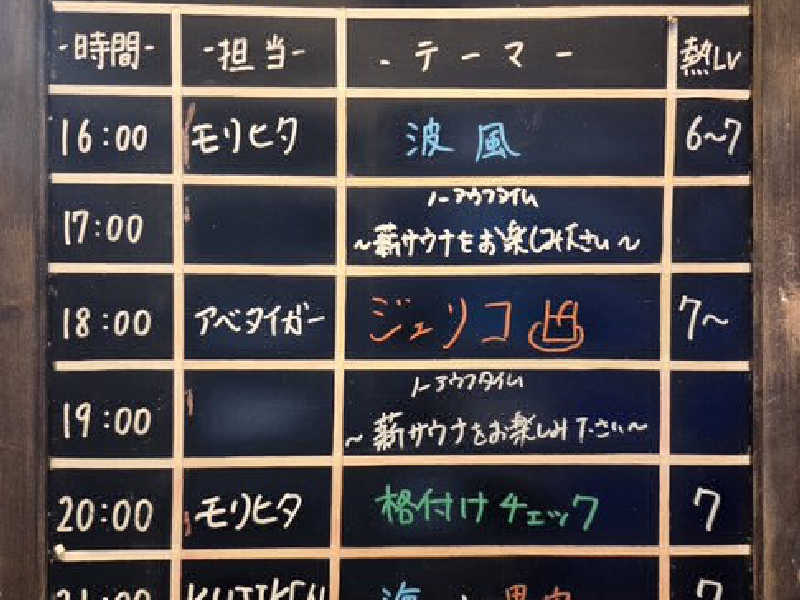 -時間- -担当- -テーマー 熱Lv
16:00 モリヒタ 波風 6~7
ノーアウフタイム
17:00 ~薪サウナをお楽しみ下さい~
18:00 アベタイガー ジェリコ 7~
ノーアウフタイム
19:00 ~薪サウナをお楽しみ下さい~
20:00 モリヒタ 格付けチェック 7